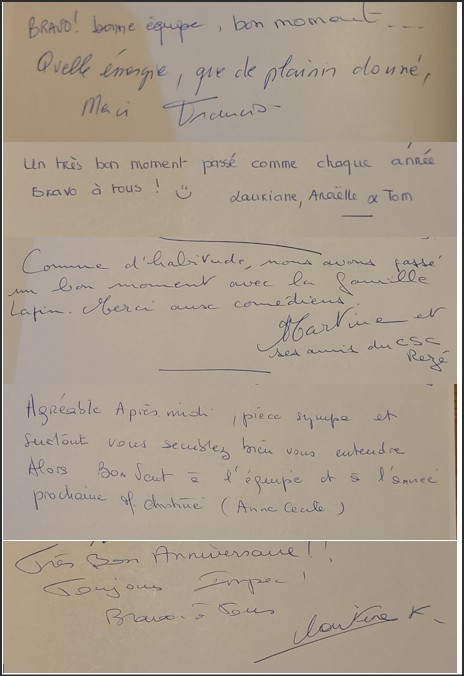 BRAVO! bonne équipe, bon moment...
Quelle énergie, que de plaisir donné,
Merci Francis
Un très bon moment passé comme chaque année
Bravo à tous ! ☺ Lauriane, Anaëlle & Tom
Comme d'habitude, nous avons passé
un bon moment avec la famille
Lapin. Merci aux comédiens
Martine et
ses amis du CSC
Rezé
Agréable Après midi, pièce sympa et
surtout vous semblez bien vous entendre
Alors Bon Vent à l'équipe et à l'année
prochaine Christine (Anne Cécile)
Très Bon Anniversaire !!
Toujours Impec !
Bravo à Tous
K.